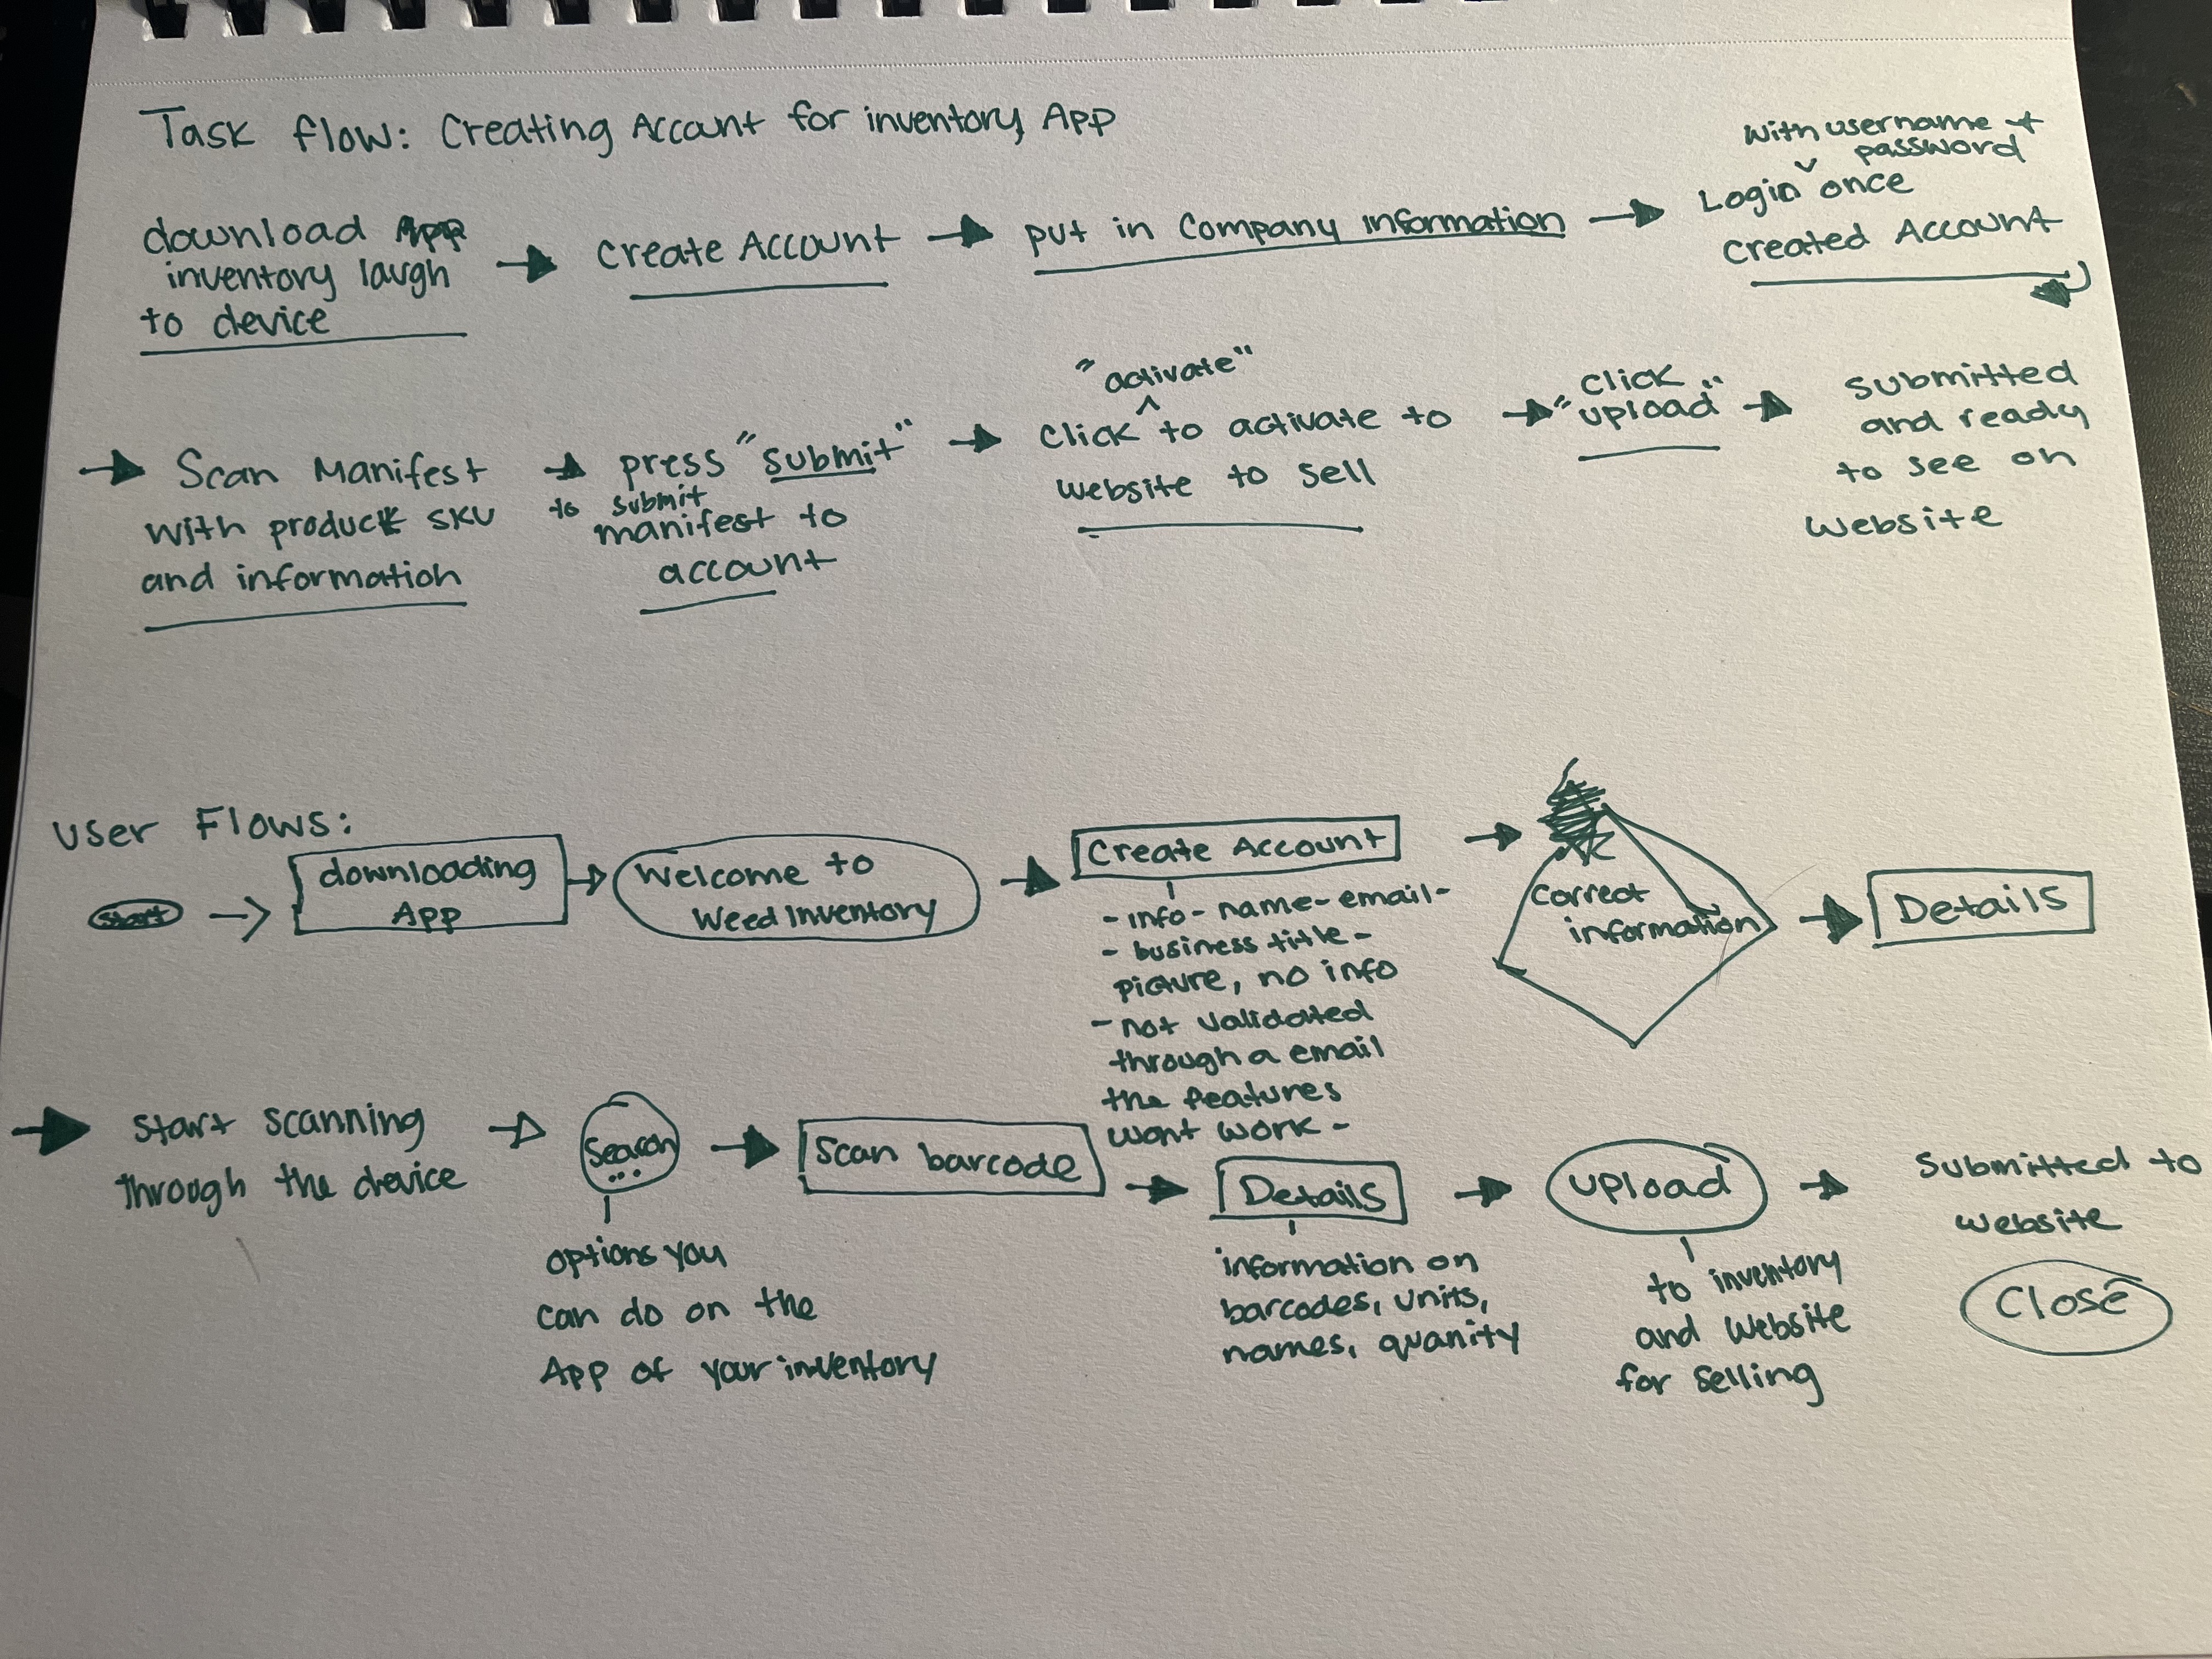 Task flow: Creating Account for inventory App
download App
inventory laugh
to device
Create Account
put in Company information
with username +
password
Login once
Created Account
Scan Manifest
with product SKU
and information
press "submit"
to submit
manifest to
account
"activate"
Click to activate to
website to sell
click
"upload"
submitted
and ready
to see on
website
User Flows:
Start
downloading
App
Welcome to
Weed Inventory
Create Account
- info - name - email -
- business title -
picture, no info
- not validated
through a email
the features
wont work -
Correct
information
Details
Start scanning
through the device
Search
...
options you
can do on the
App of your inventory
Scan barcode
Details
information on
barcodes, units,
names, quanity
upload
to inventory
and website
for selling
Submitted to
website
Close